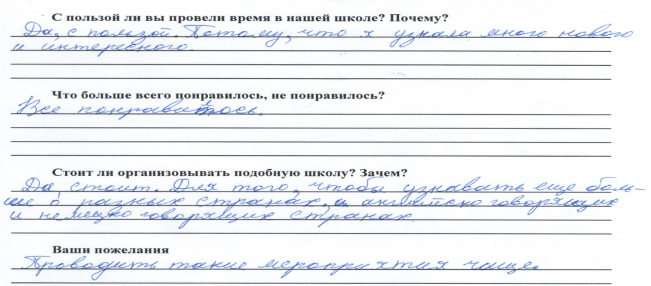 С пользой ли вы провели время в нашей школе? Почему?
Да, с пользой. Потому, что я узнала много нового
и интересного.
Что больше всего понравилось, не понравилось?
Все понравилось.
Стоит ли организовывать подобную школу? Зачем?
Да, стоит. Для того, чтобы узнавать еще боль-
ше о разных странах, а английско говорящих
и немецко говорящих странах.
Ваши пожелания
Проводить такие мероприятия чаще.